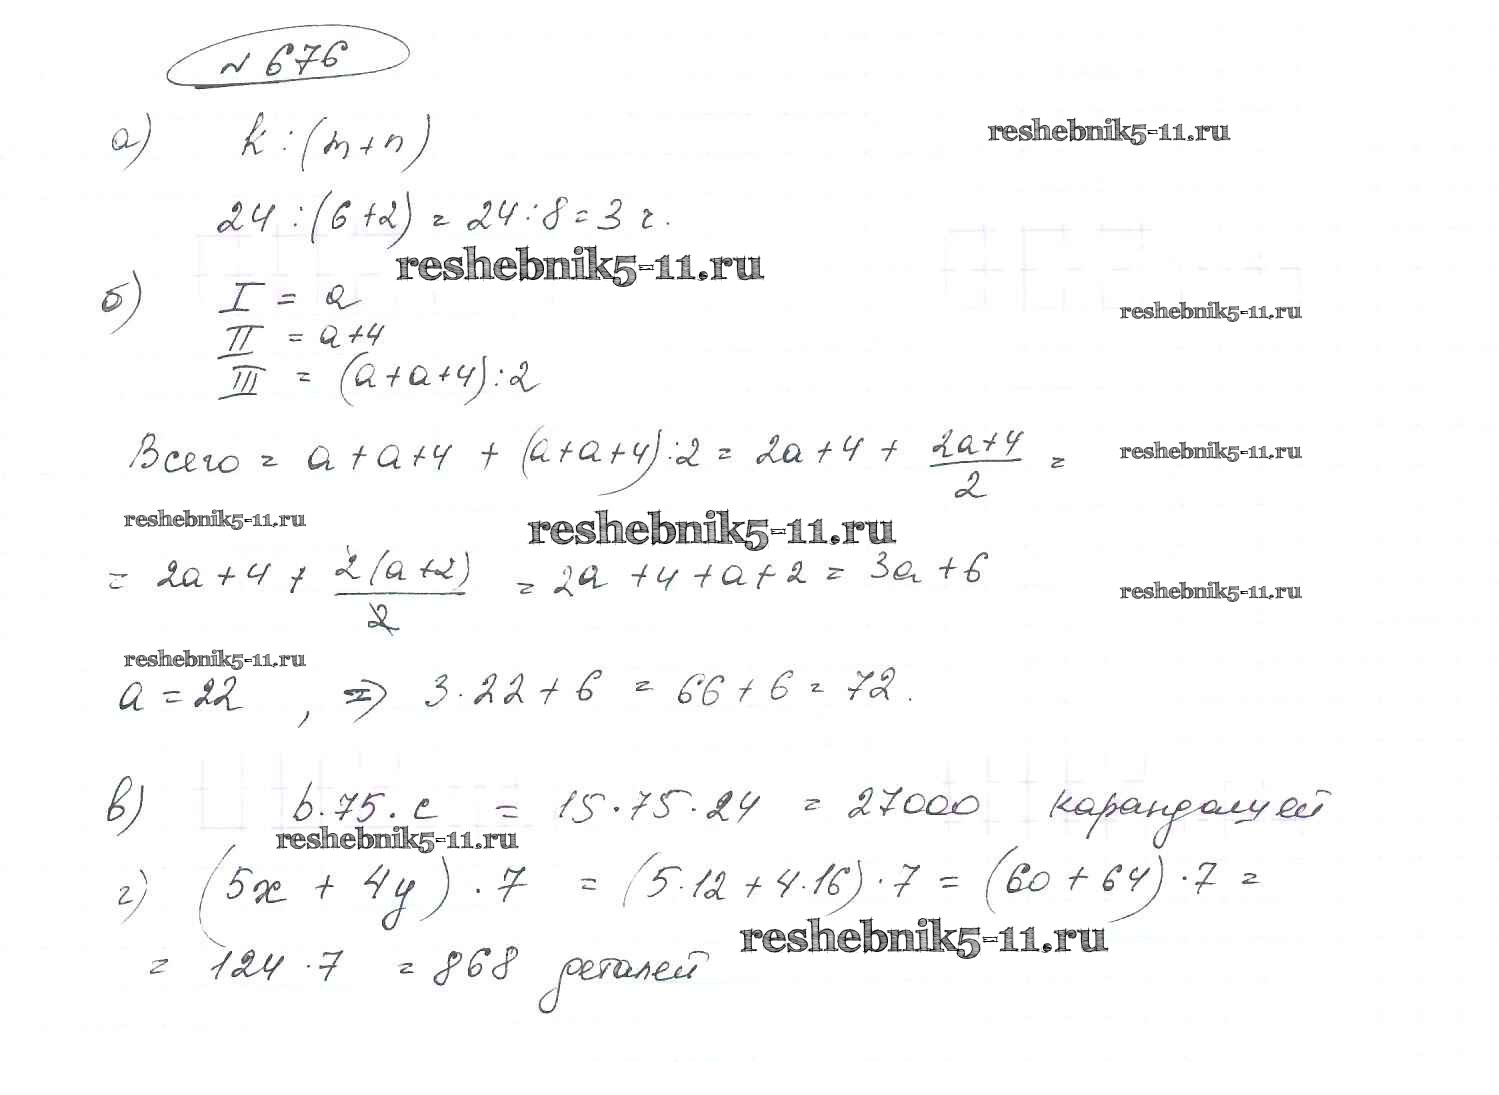 № 676
а) k : (m+n)
reshebnik5-11.ru
24 : (6+2) = 24 : 8 = 3 г.
reshebnik5-11.ru
б) I = a
reshebnik5-11.ru
II = a+4
III = (a+a+4) : 2
Всего = a + a+4 + (a+a+4) : 2 = 2a + 4 + (2a+4)/2 =
reshebnik5-11.ru
reshebnik5-11.ru
reshebnik5-11.ru
= 2a + 4 + 2(a+2)/2 = 2a + 4 + a + 2 = 3a + 6
reshebnik5-11.ru
reshebnik5-11.ru
a = 22 , => 3 · 22 + 6 = 66 + 6 = 72.
в) b · 75 · c = 15 · 75 · 24 = 27000 карандашей
reshebnik5-11.ru
г) (5x + 4y) · 7 = (5·12 + 4·16) · 7 = (60 + 64) · 7 =
reshebnik5-11.ru
= 124 · 7 = 868 деталей